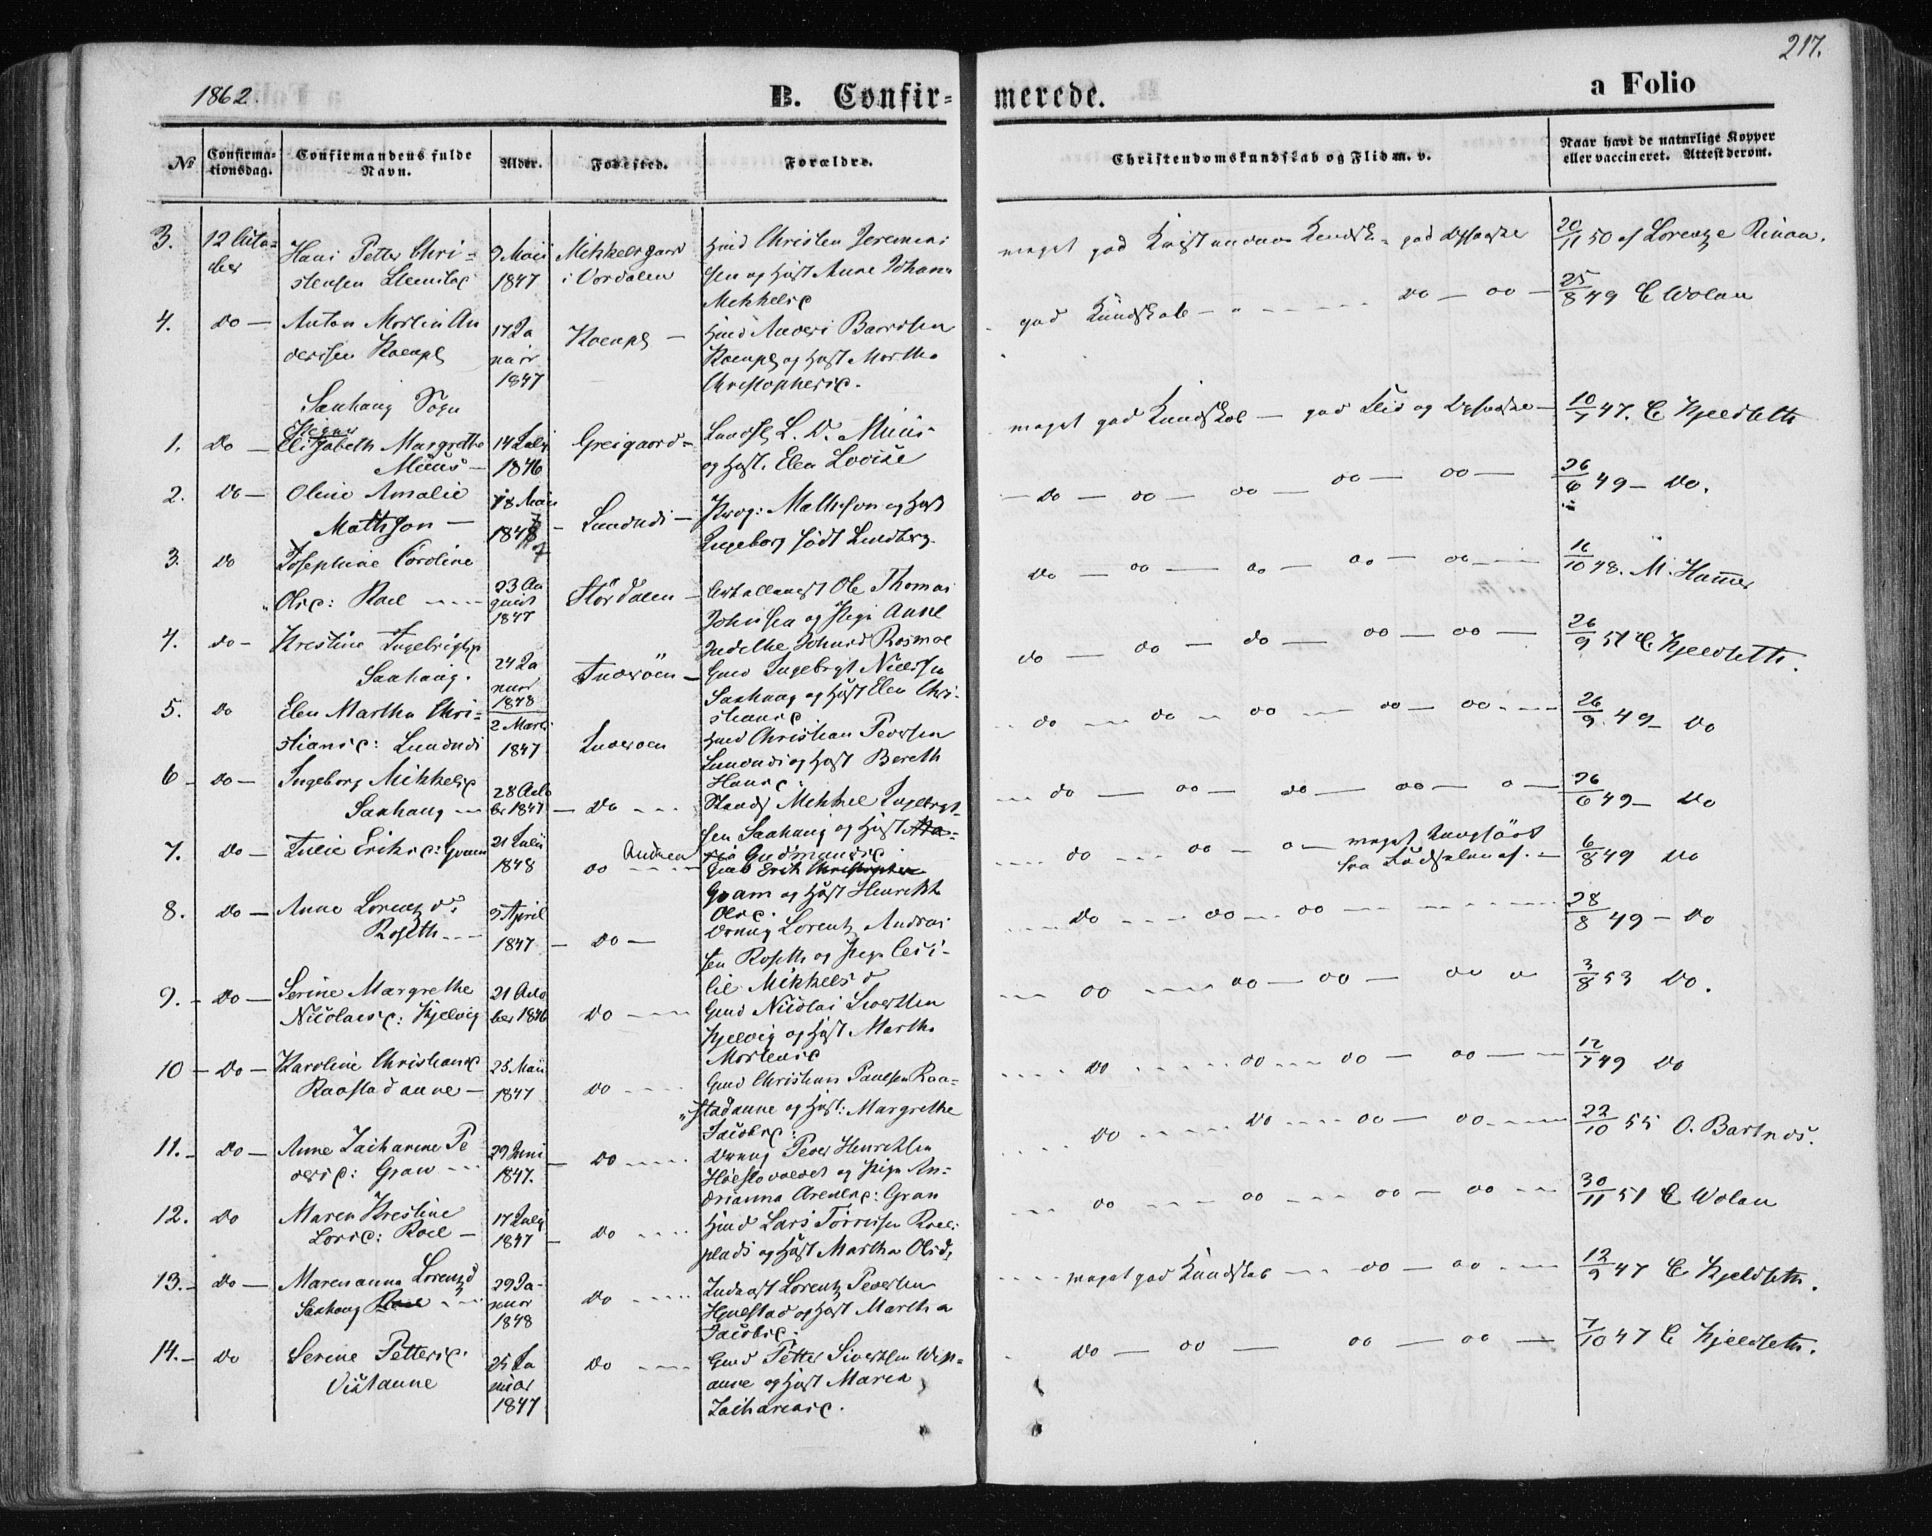 217.
1862. B. Confir- merede. a Folio
No Confirma-tionsdag. Confirmandens fulde Navn. Alder. Fødested. Forældre. Christendomskundskab og Flid m. v. Naar havt de naturlige Kopper eller vaccineret. Attest derom.
3. 12 Octo- Hans Petter Chri- 9 Maii
ber stensen 1847 i Værdalen
Husmd Christen Jeremias
sen og Hust Anne Johanna
Mikkelsd
meget god Kundsk. god Opførsel 20/11 50 af Lorentze Rinan.
4. do Anton Martin An 17 Ja
dersen nuar
1847
Husmd Anders Baardsen
og Hust Martha
Christophersd.
god Kundskab do do 25/8 49 E Wolan
Saxhaug Sogn
Piger
1. do Elisabeth Margrethe 14 July
Müüs 1846
L. D. Müüs
og Hust. Elen Lovise
meget god Kundskab god Flid og Opførsel 10/7 47. E Kjeldseth
2. do Oline Amalie 18 Maii
Mathson 1848
Lundndi
Mathson og Hust
Ingeborg født Lundberg
do do do do do 26/6 49 do.
3. do Josephine Caroline
Olsd: Roel 23 Au
gust
1847
Størdalen
Ole Thomas
Johnsen og Pige Anne
do do do do do 16/10 48. M. Hammer
4. do Kristine Ingebrigtsd
Saxhaug. 24 Ja
nuar
1848
Inderøen
Gmd Ingebrigt Nielsen
Saxhaug og Hust Elen Chri-
stiansd
do do do do do 26/9 51 E Kjeldseth.
5. do Elen Martha Chri- 2 Marts
stiansd: Lundndi 1847
Inderøen
Husmd Christian Pedersen
Lundndi og Hust Bereth
Hansd
do do do do do 26/9 49 do
6 do Ingeborg Mikkelsd
Saxhaug 28 Octo
ber 1847 do
Mikkel Ingebrigt-
sen Saxhaug og Hust Ma-
ria Gudmundsd
do do do do 26/6 49 do
7. do Julie Eriksd: Gram 21 Julii
1848 do Andrea
Gmd Erik Christopher
Gram og Hust Henrikke
Olsd.
do do meget tunghørt
fra Fødselen af. 6/8 49 do
8. do Anne Lorentzd: 5 April
Roseth 1847 do
Ungk Lorentz Andreas
sen Roseth og Pige Ceci-
lie Mikkelsd
do do do 28/8 49 do
9. do Serine Margrethe 21 Octo
Nicolaisd: Kjelvig ber 1846 do
Gmd Nicolai Sivertsen
Kjelvig og Hust Martha
Mortensd
do do do do 3/8 53 do.
10 do Karoline Christiansd 25 Maii
Raastadaune 1847 do
Gmd Christian Paulsen Raa-
stadaune og Hust: Margrethe
Jacobsd:
do do do do 12/7 49 do
11. do Anne Zacharine Pe 29 Juni
dersd: Gran 1847. do
Ungk Peder Henriksen
og Pige An-
drianna Arentsd: Gran
do do do do 22/10 55 O. Bartnes.
12. do Maren Kristine 17 July
Larsd: Roel 1847 do
Husmd Lars Torresen Roels
plads og Hust Martha Olsd,
do do do do 30/11 51 E Wolan
13. do Marenanna Lorentzd 29 Ja-
Saxhaug Roel nuar
1848 do
Indst Lorentz Pedersen
Hjulstad og Hust Martha
Jacobsd.
meget god Kundskab do do 12/9 47 E Kjeldseth.
14. do Serine Pettersd. 25 Ja
Vistaune nuar
1847 do
Gmd Petter Sivertsen Wist-
aune og Hust Maren
Zachariasd.
do do do do 7/10 47 E Kjeldseth.